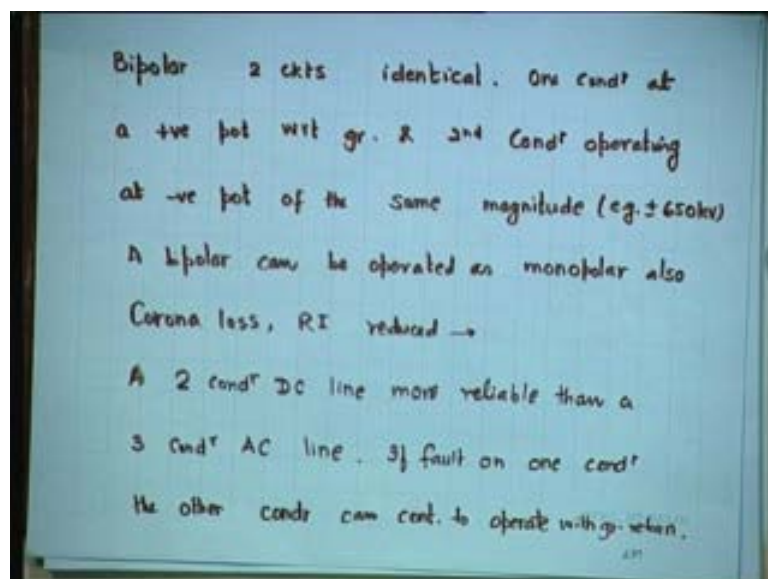 Bipolar 2 ckts identical. One Condr at
a +ve pot wrt gr. & 2nd Condr operating
at -ve pot of the same magnitude (eg. ± 650kv)
A bipolar can be operated as monopolar also
Corona loss, RI reduced →
A 2 condr DC line more reliable than a
3 Condr AC line. If fault on one condr
the other condr can cont. to operate with gr. return.